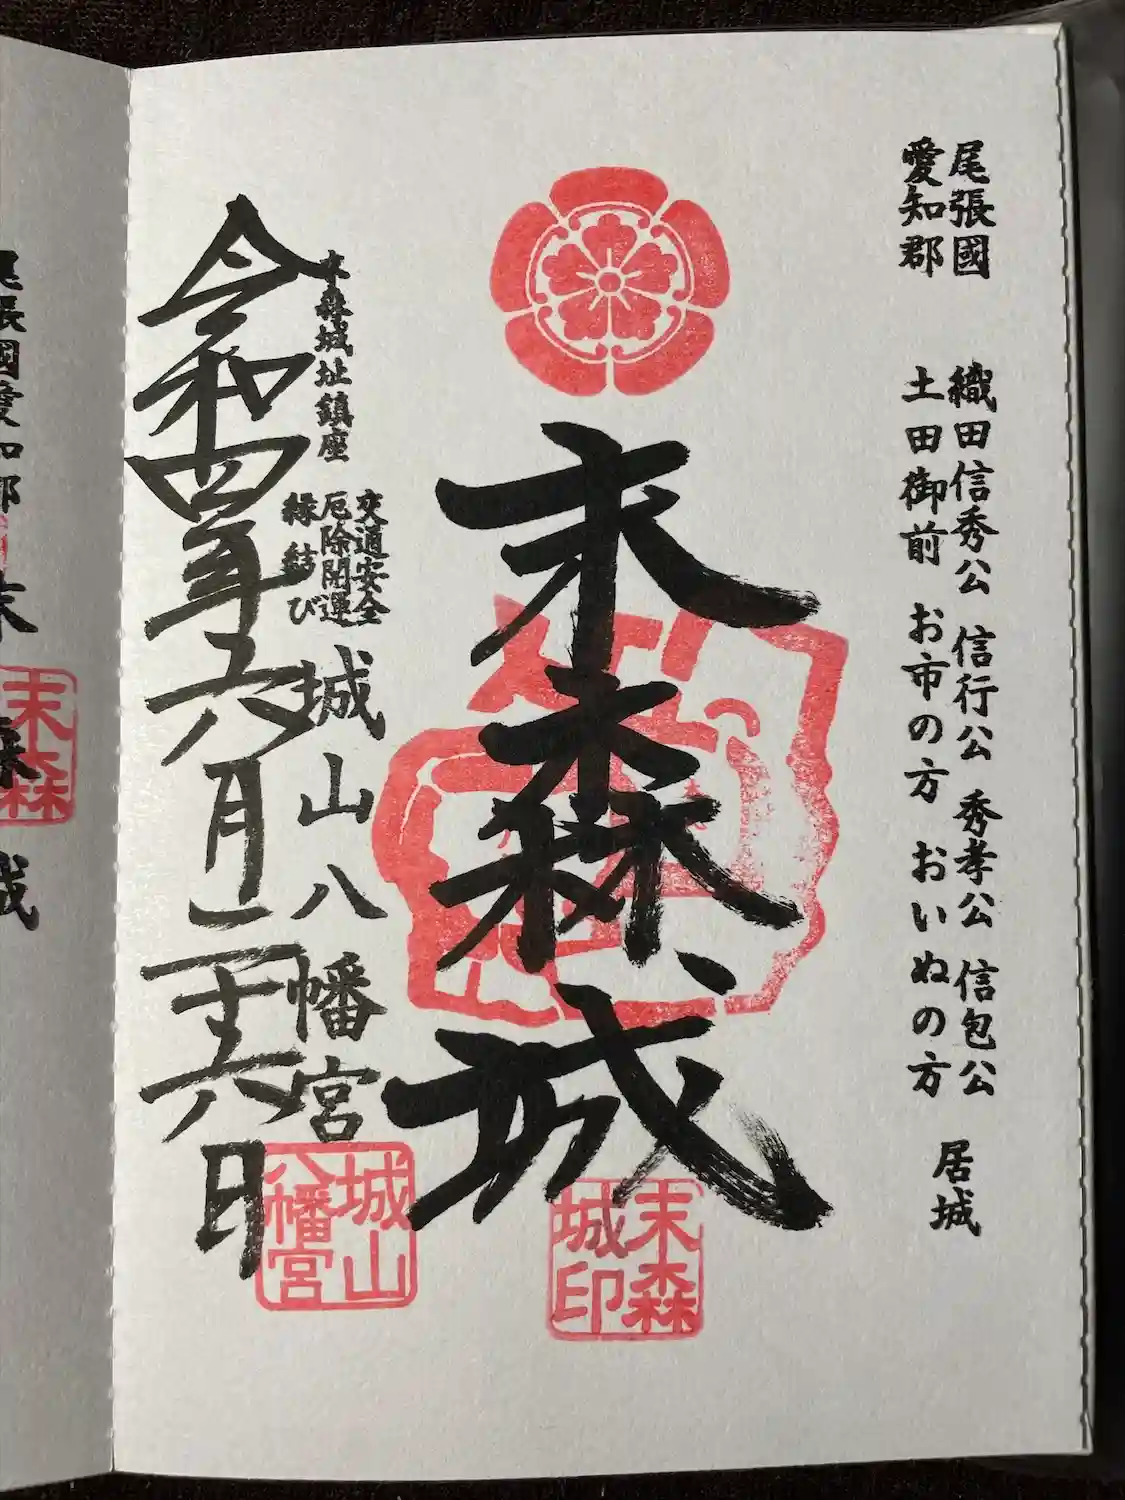 尾張國 織田信秀公 信行公 秀孝公 信包公
愛知郡 土田御前 お市の方 おいぬの方
居城
末森城
末森
城印
交通安全
厄除開運
縁結び
末森城址鎮座
城山八幡宮
城山
八幡宮
令和四年六月二十六日
尾張國愛知郡
末森城
末森